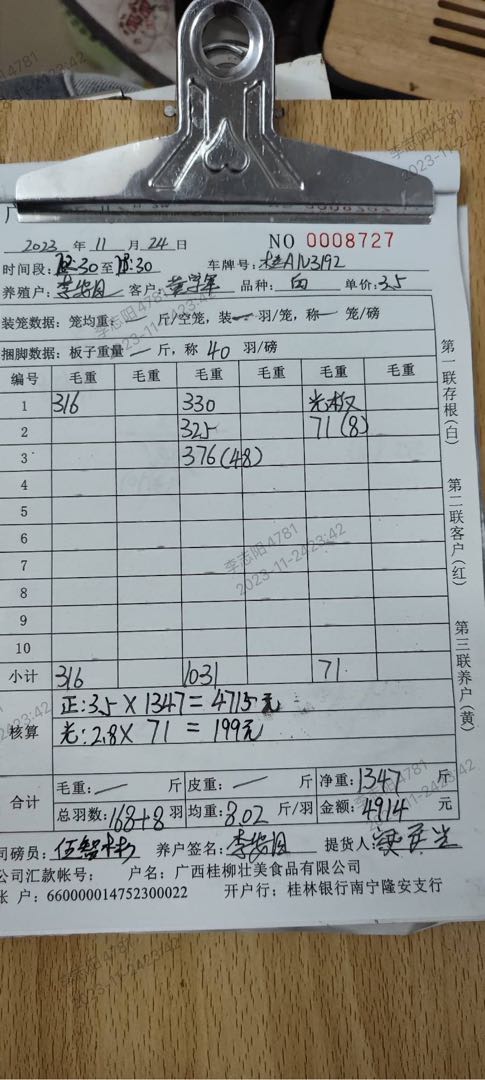 2023 年 11 月 24 日 NO 0008727
时间段: :30 至 :30 车牌号: 桂A1N3192
养殖户: 李 客户: 黄 品种: 白 单价: 3.5
装笼数据: 笼均重: — 斤/空笼, 装 — 羽/笼, 称 — 笼/磅
捆脚数据: 板子重量 — 斤, 称 40 羽/磅
编号 毛重 毛重 毛重 毛重 毛重 毛重
1 316 330 光板
2 325 71(8)
3 376(48)
4
5
6
7
8
9
10
小计 316 1031 71
核算 正: 3.5 × 1347 = 4715元
光: 2.8 × 71 = 199元
合计 毛重: — 斤 皮重: — 斤 净重: 1347 斤
总羽数: 168+8 羽 均重: 8.02 斤/羽 金额: 4914 元
司磅员: 伍 养户签名: 李 提货人:
公司汇款帐号: 户名: 广西桂柳壮美食品有限公司
帐 户: 660000014752300022 开户行: 桂林银行南宁隆安支行
第一联存根(白)
第二联客户(红)
第三联养户(黄)
李志阳4781
2023-11-2423:42